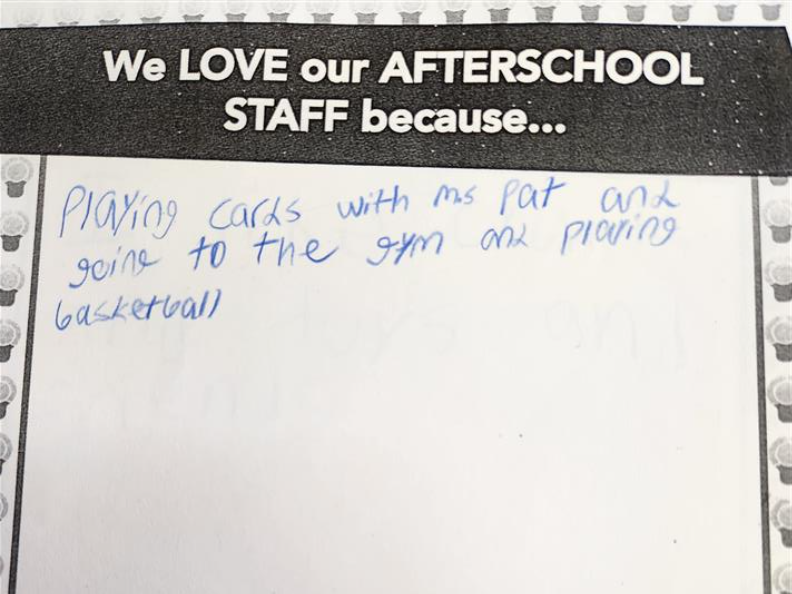 We LOVE our AFTERSCHOOL
STAFF because...
Playing cards with ms pat and
going to the gym and playing
basketball